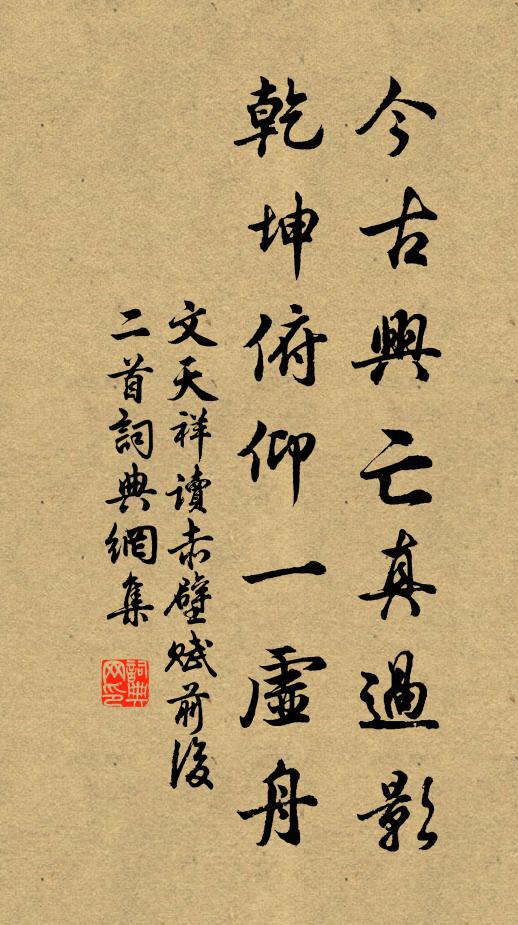 今古興亡真過影
乾坤俯仰一虛舟
文天祥讀赤壁賦前後
二首詞典網集
詞典网印